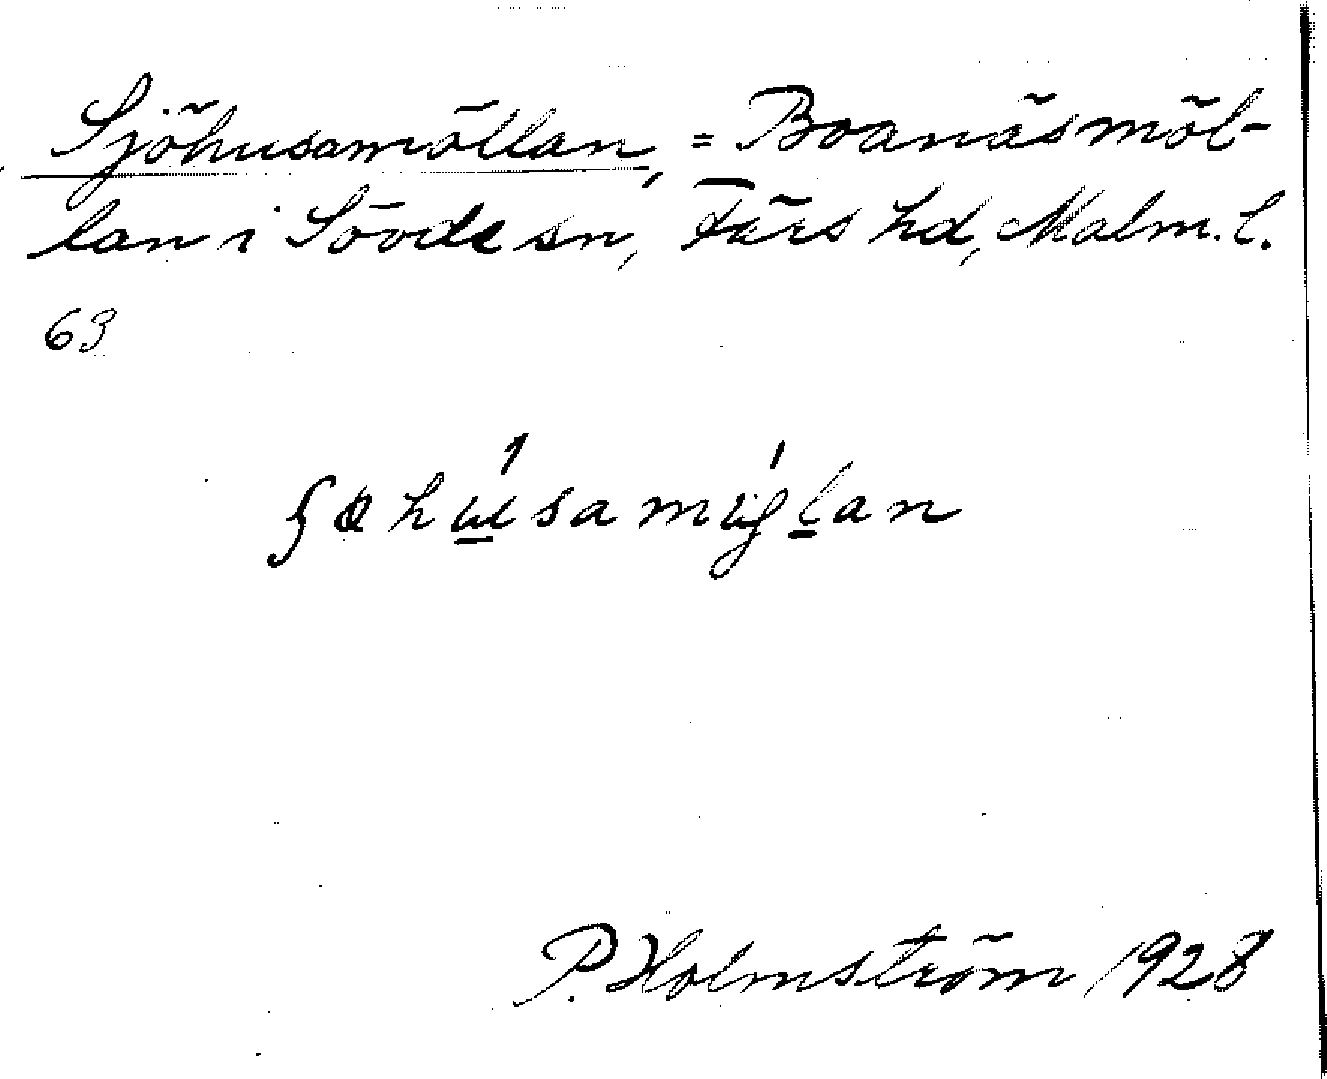 Sjöhusamöllan, = Boanäsmöl-
lan i Sövde sn, Färs hd, Malm. l.
63
P. Holmström 1928